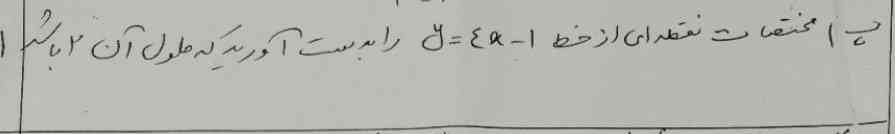 پ) مختصات نقطه ای از خط y = ۴x - ۱ را بدست آورید که طول آن ۲ باشد